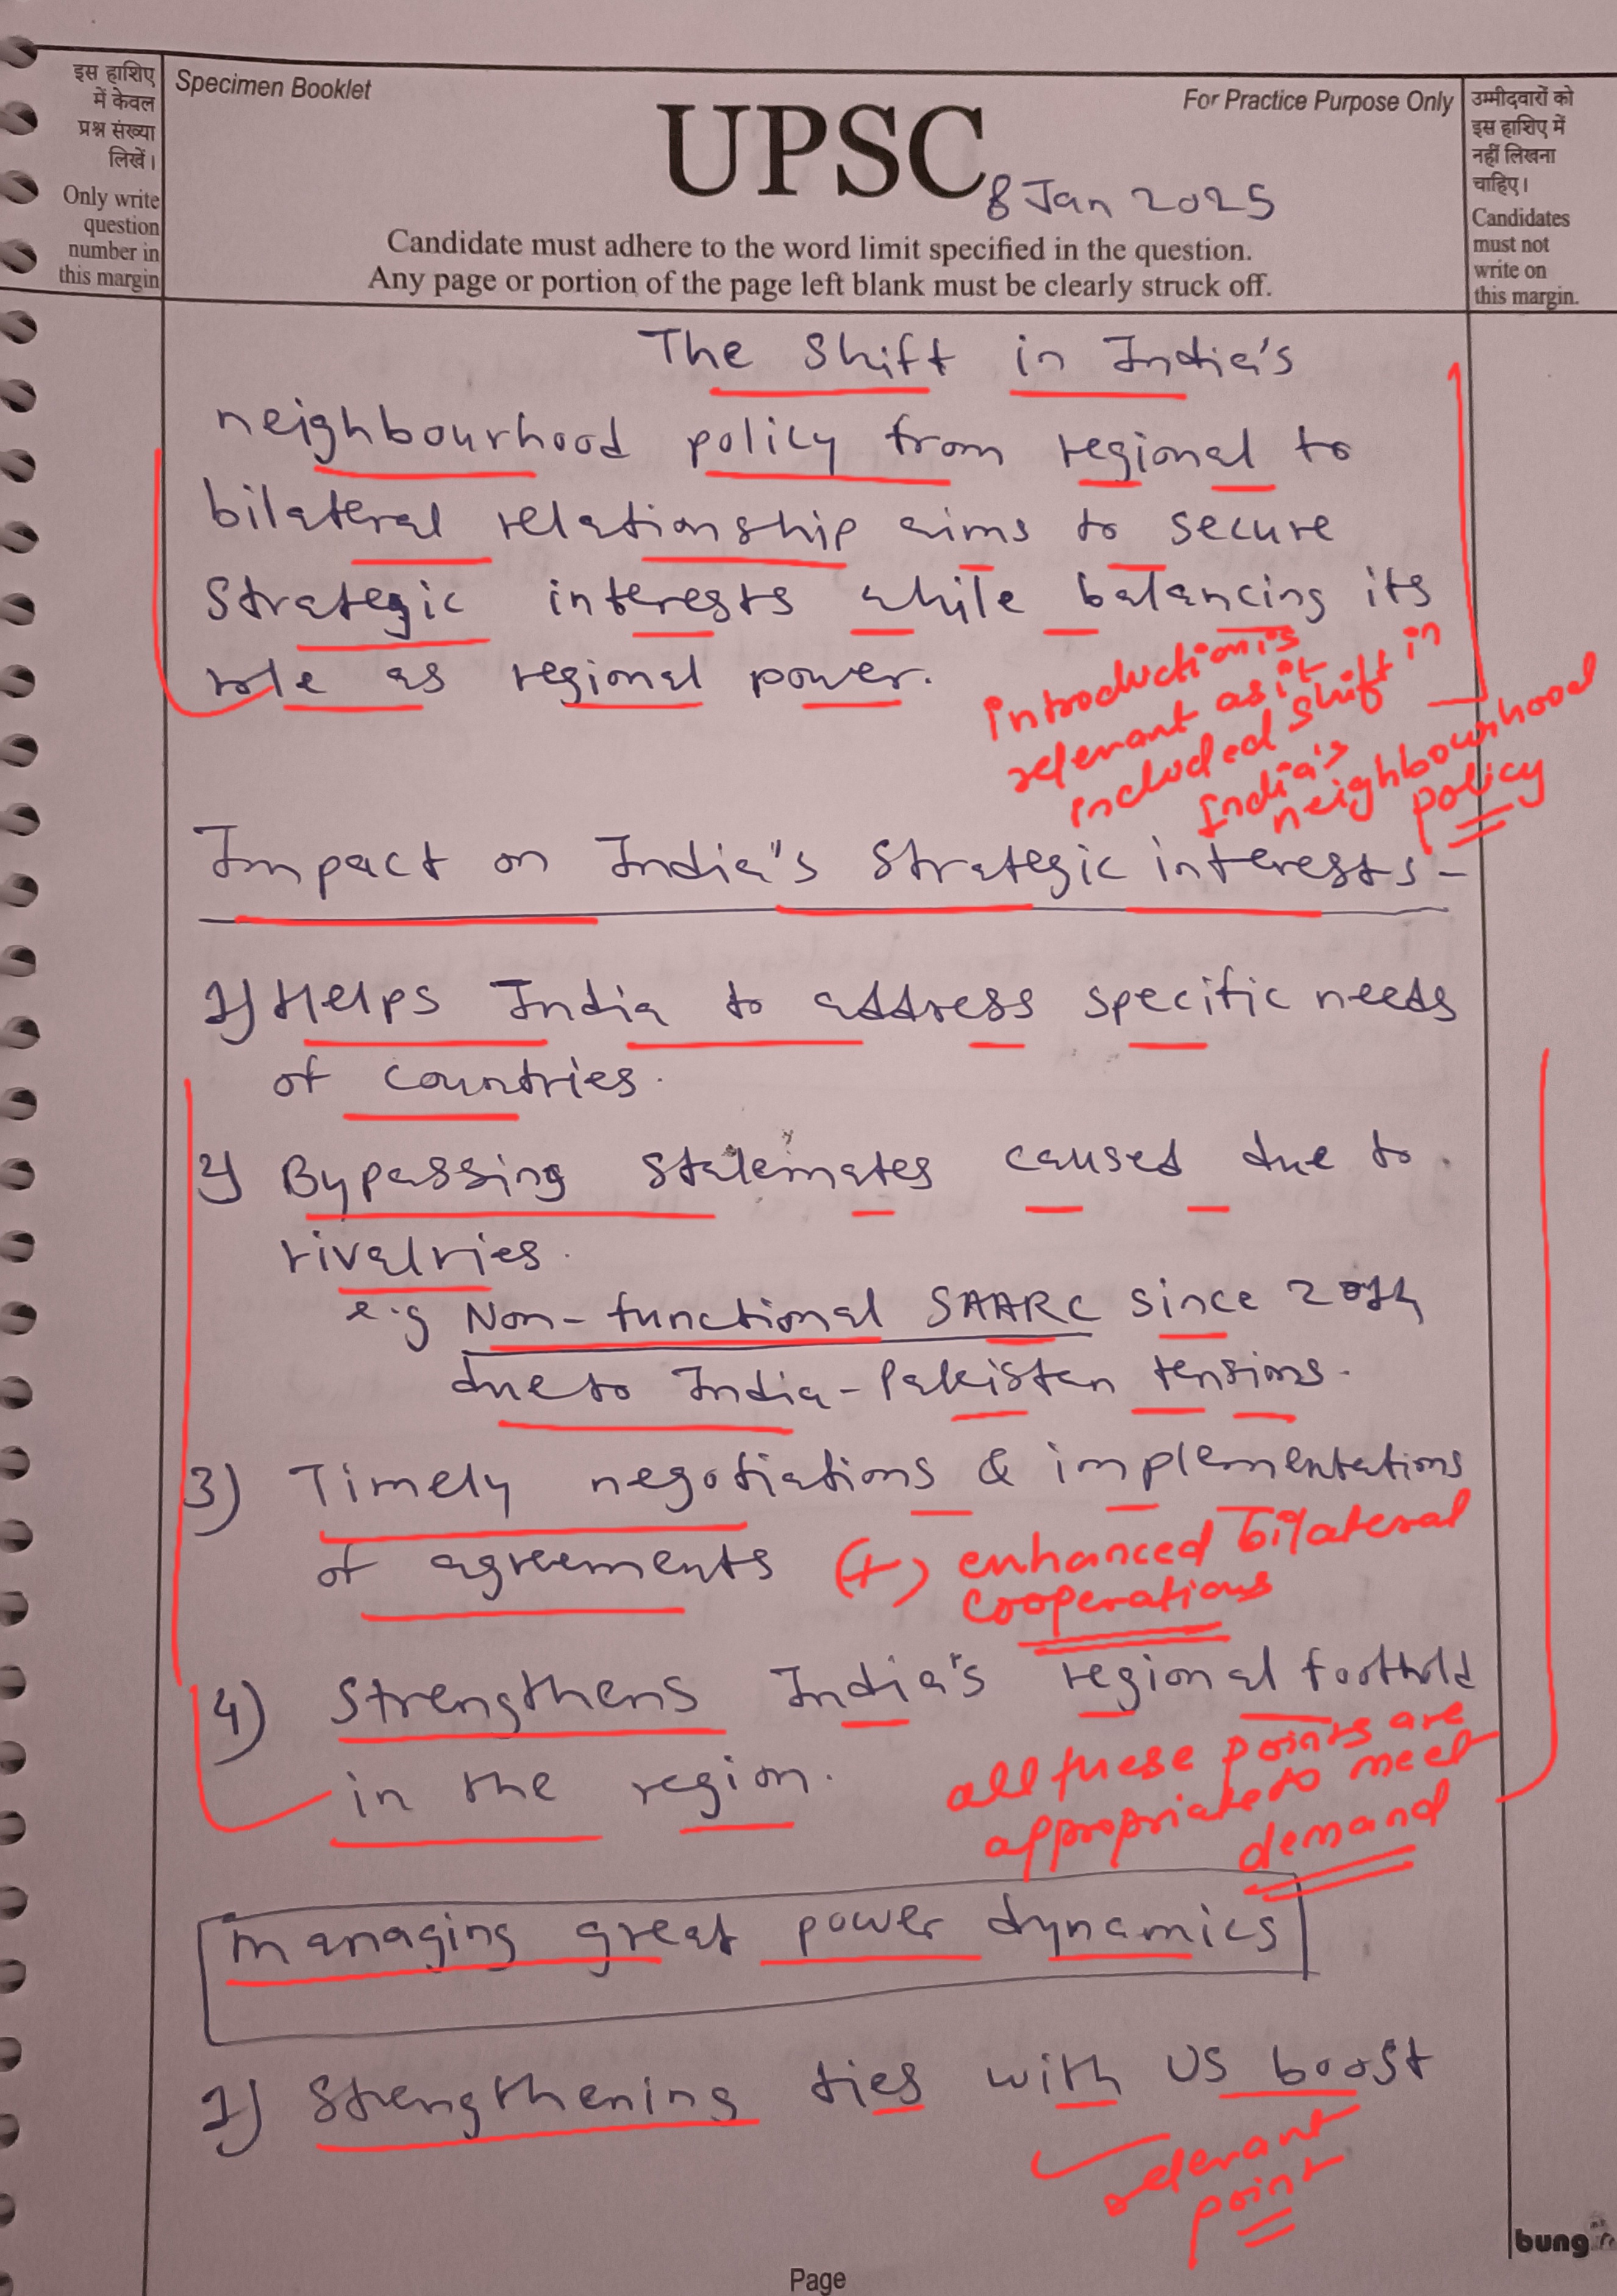 इस हाशिए
में केवल
प्रश्न संख्या
लिखें।
Only write
question
number in
this margin
Specimen Booklet
For Practice Purpose Only
UPSC
8 Jan 2025
Candidate must adhere to the word limit specified in the question.
Any page or portion of the page left blank must be clearly struck off.
उम्मीदवारों को
इस हाशिए में
नहीं लिखना
चाहिए।
Candidates
must not
write on
this margin.
The shift in India's
neighbourhood policy from regional to
bilateral relationship aims to secure
strategic interests while balancing its
role as regional power.
introduction is
relevant as it
included shift in
India's
neighbourhood
policy
Impact on India's strategic interests -
1) Helps India to address specific needs
of countries.
2) Bypassing stalemates caused due to
rivalries.
e.g Non-functional SAARC since 2014
due to India-Pakistan tensions.
3) Timely negotiations & implementations
of agreements
(+) enhanced bilateral
cooperations
4) Strengthens India's regional foothold
in the region.
all these points are
appropriate to meet
demand
Managing great power dynamics
1) Strengthening ties with US boost
relevant
point
Page
bung